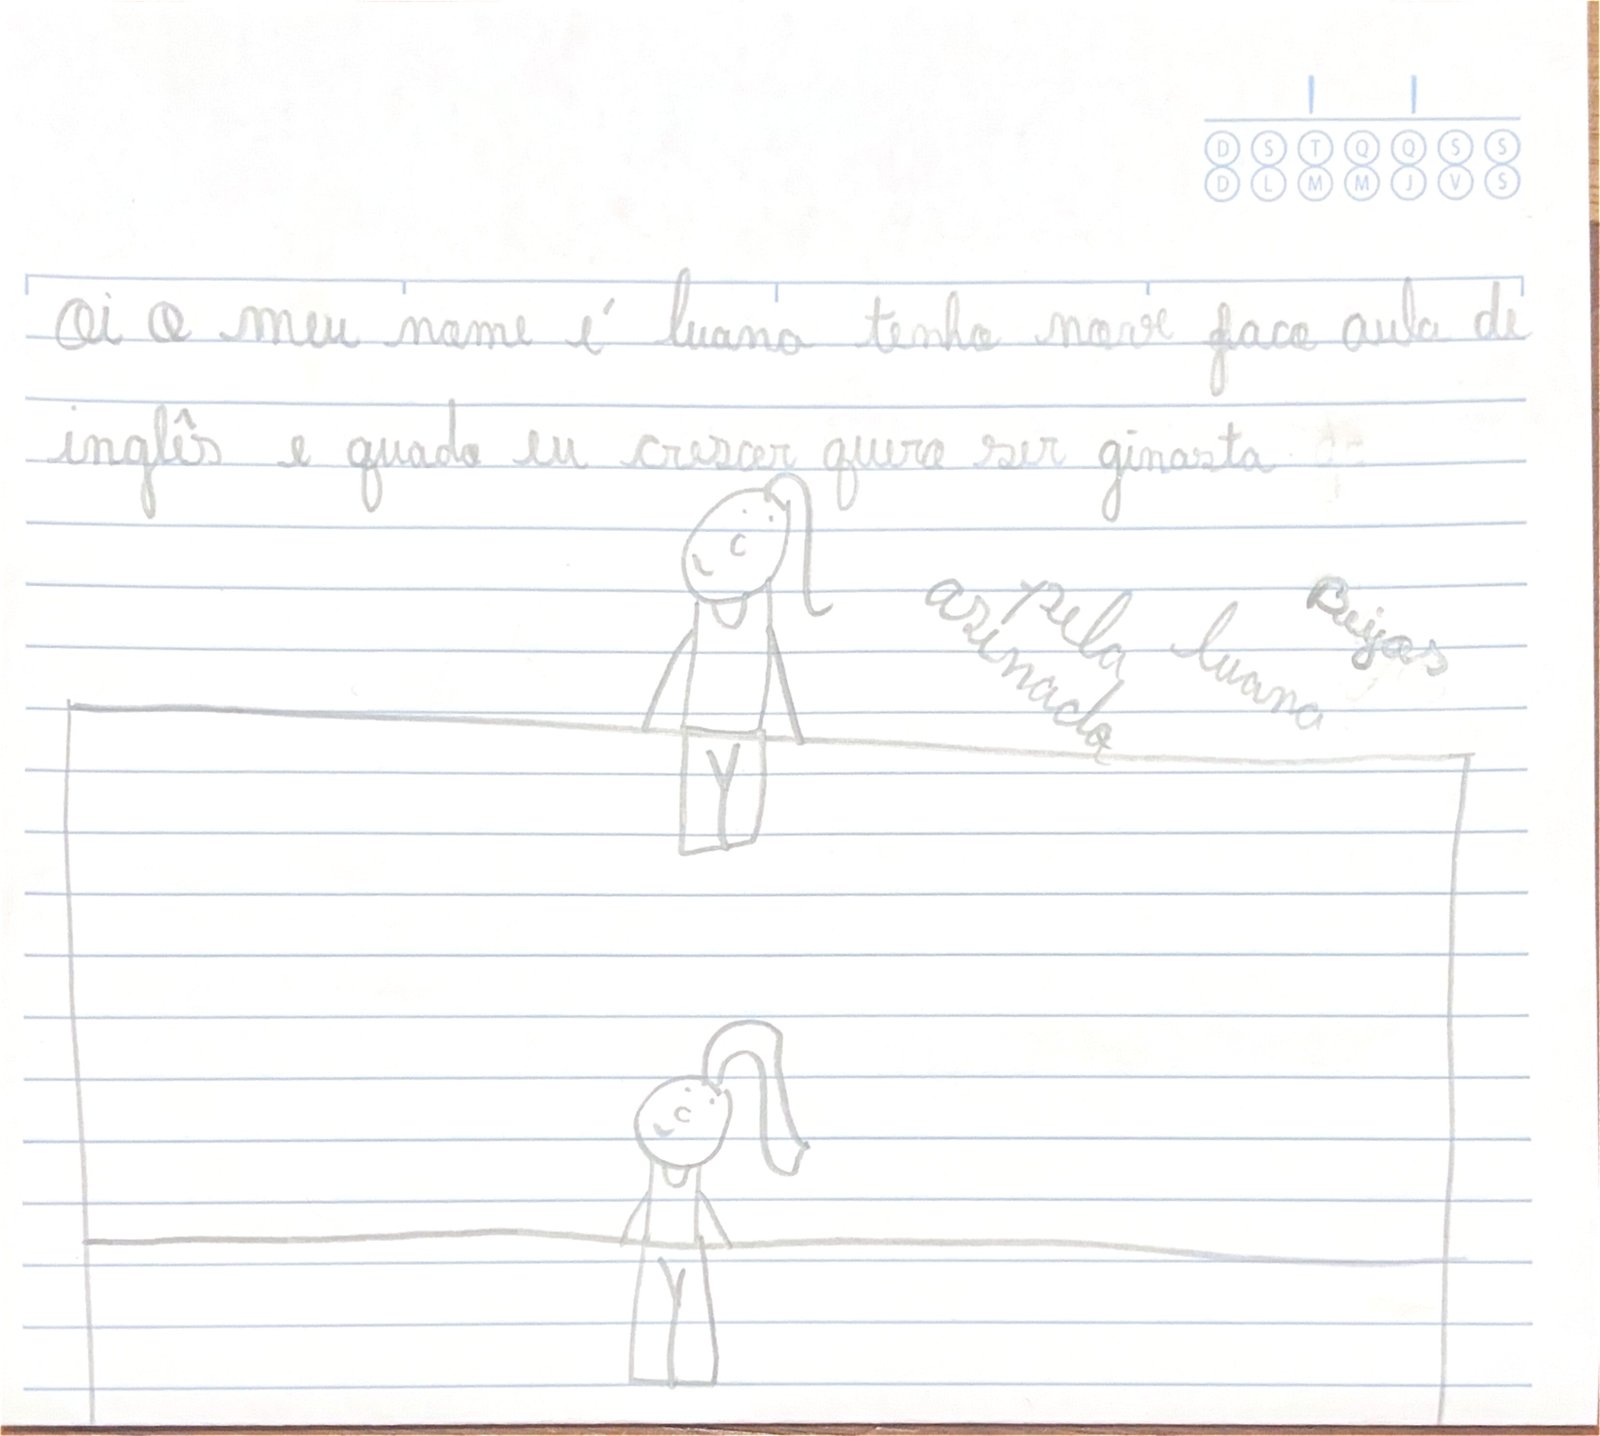 D S T Q Q S S
D L M M J V S
Oi o meu nome é luana tenho nove faco aula de
inglês e quado eu crescer quero ser ginasta
asinado
pela
luana
Beijos